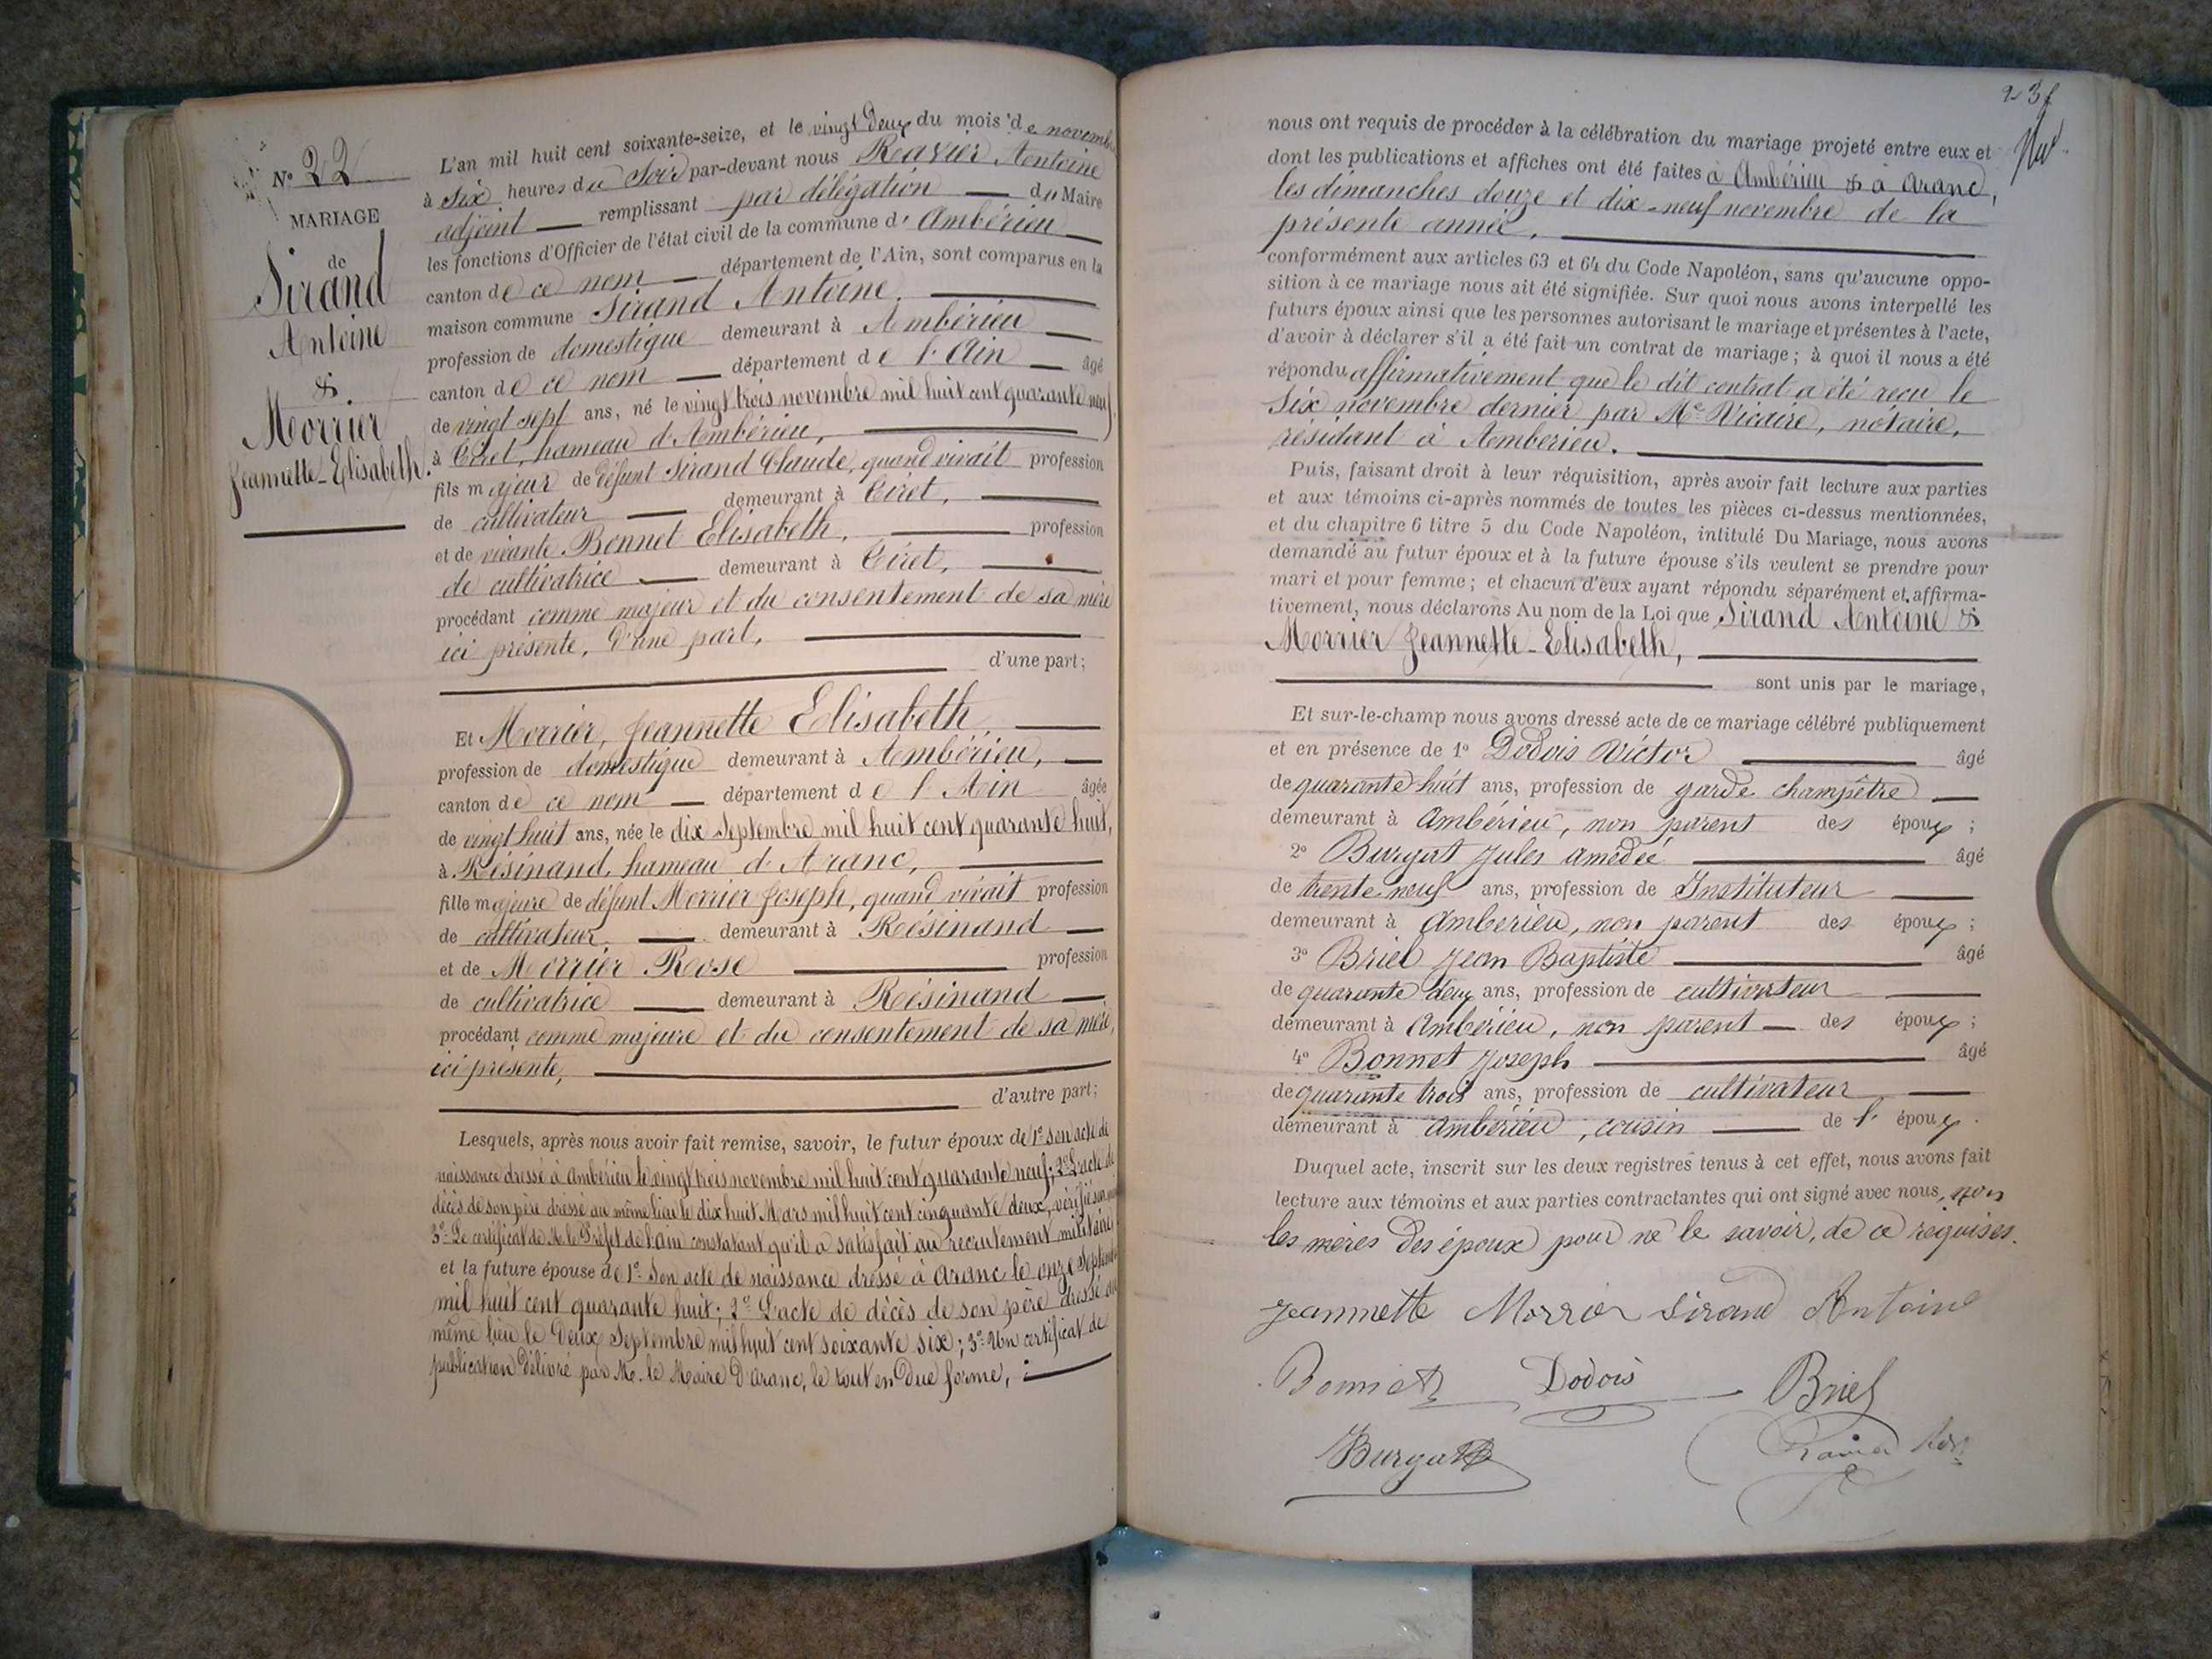 N° 22
MARIAGE
de
Sirand
Antoine
&.
Morrier
Jeannette-Elisabeth.
L'an mil huit cent soixante-seize, et le vingt deux du mois de novembre
à six heures du soir par-devant nous Ravier Antoine
adjoint remplissant par délégation du Maire
les fonctions d'Officier de l'état civil de la commune d'Ambérieu
canton de ce nom département de l'Ain, sont comparus en la
maison commune Sirand Antoine,
profession de domestique demeurant à Ambérieu
canton de ce nom département de l'Ain âgé
de vingt sept ans, né le vingt trois novembre mil huit cent quarante neuf
à Tiret, hameau d'Ambérieu,
fils majeur de défunt Sirand Claude, quand vivait profession
de cultivateur demeurant à Tiret,
et de vivante Bonnet Elisabeth, profession
de cultivatrice demeurant à Tiret,
procédant comme majeur et du consentement de sa mère
ici présente, d'une part,
d'une part;
Et Morrier, Jeannette Elisabeth
profession de domestique demeurant à Ambérieu,
canton de ce nom département de l'Ain âgée
de vingt huit ans, née le dix septembre mil huit cent quarante huit,
à Résinand, hameau d'Aranc,
fille majeure de défunt Morrier Joseph, quand vivait profession
de cultivateur demeurant à Résinand
et de Morrier Rose profession
de cultivatrice demeurant à Résinand
procédant comme majeure et du consentement de sa mère,
ici présente,
d'autre part;
Lesquels, après nous avoir fait remise, savoir, le futur époux de 1° son acte de
naissance dressé à Ambérieu le vingt trois novembre mil huit cent quarante neuf; 2° L'acte de
décès de son père dressé au même lieu le dix huit Mars mil huit cent cinquante deux, vérifié
3° Le certificat de M. le Préfet de l'ain constatant qu'il a satisfait au recrutement militaire
et la future épouse de 1° Son acte de naissance dressé à Aranc le onze Septembre
mil huit cent quarante huit; 2° L'acte de décès de son père dressé au
même lieu le Deux Septembre mil huit cent soixante six; 3° Un certificat de
publication délivré par M. le Maire d'Aranc, le tout en due forme,
23
nous ont requis de procéder à la célébration du mariage projeté entre eux et
dont les publications et affiches ont été faites à Ambérieu & à Aranc,
les dimanches douze et dix-neuf novembre de la
présente année,
conformément aux articles 63 et 64 du Code Napoléon, sans qu'aucune oppo-
sition à ce mariage nous ait été signifiée. Sur quoi nous avons interpellé les
futurs époux ainsi que les personnes autorisant le mariage et présentes à l'acte,
d'avoir à déclarer s'il a été fait un contrat de mariage; à quoi il nous a été
répondu affirmativement que le dit contrat a été reçu le
six novembre dernier par Me Vicaire, notaire,
résidant à Ambérieu.
Puis, faisant droit à leur réquisition, après avoir fait lecture aux parties
et aux témoins ci-après nommés de toutes les pièces ci-dessus mentionnées,
et du chapitre 6 titre 5 du Code Napoléon, intitulé Du Mariage, nous avons
demandé au futur époux et à la future épouse s'ils veulent se prendre pour
mari et pour femme; et chacun d'eux ayant répondu séparément et affirma-
tivement, nous déclarons Au nom de la Loi que Sirand Antoine &
Morrier Jeannette-Elisabeth,
sont unis par le mariage,
Et sur-le-champ nous avons dressé acte de ce mariage célébré publiquement
et en présence de 1° Dodois Victor âgé
de quarante huit ans, profession de garde champêtre
demeurant à Ambérieu, non parent des époux;
2° Burgat Jules Amédée âgé
de trente neuf ans, profession de Instituteur
demeurant à Ambérieu, non parent des époux;
3° Briel Jean Baptiste âgé
de quarante deux ans, profession de cultivateur
demeurant à Ambérieu, non parent des époux;
4° Bonnet Joseph âgé
de quarante trois ans, profession de cultivateur
demeurant à Ambérieu, cousin de l'époux.
Duquel acte, inscrit sur les deux registres tenus à cet effet, nous avons fait
lecture aux témoins et aux parties contractantes qui ont signé avec nous, non
les mères des époux pour ne le savoir, de ce requises.
Jeannette Morrier Sirand Antoine
Bonnet Dodois Briel
Burgat Ravier